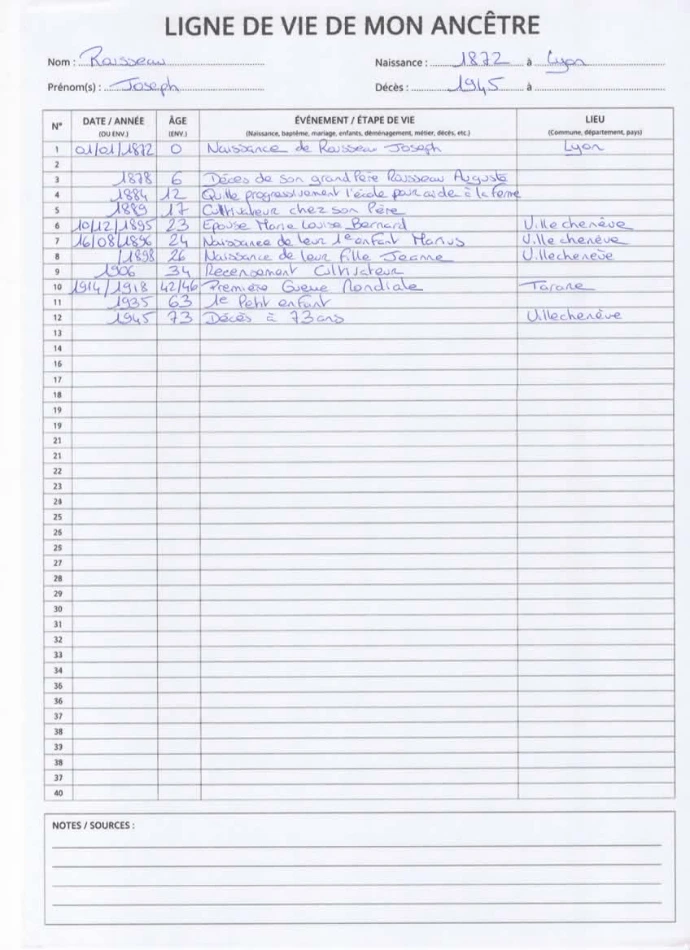 LIGNE DE VIE DE MON ANCÊTRE
Nom : Raisseau Naissance : 1872 à Lyon
Prénom(s) : Joseph Décès : 1945 à
N° DATE / ANNÉE (OU ENV.) ÂGE (ENV.) ÉVÉNEMENT / ÉTAPE DE VIE (Naissance, baptême, mariage, enfants, déménagement, métier, décès, etc.) LIEU (Commune, département, pays)
1 01/01/1872 0 Naissance de Raisseau Joseph Lyon
2
3 1878 6 Décès de son grand Père Raisseau Auguste
4 1884 12 Quitte progressivement l'école pour aider à la ferme
5 1889 17 Cultivateur chez son Père
6 10/12/1895 23 Epouse Marie Louise Bernard Villechenève
7 16/08/1896 24 Naissance de leur 1e enfant Marius Ville chenève
8 /1898 26 Naissance de leur fille Jeanne Villechenève
9 1906 34 Recensement Cultivateur
10 1914/1918 42/46 Première Guerre Mondiale Tarare
11 1935 63 1e Petit enfant
12 1945 73 Décès à 73 ans Villechenève
13
14
16
17
18
19
19
21
21
22
23
24
25
26
25
27
28
29
30
31
32
33
34
36
36
37
38
39
38
37
40
NOTES / SOURCES :